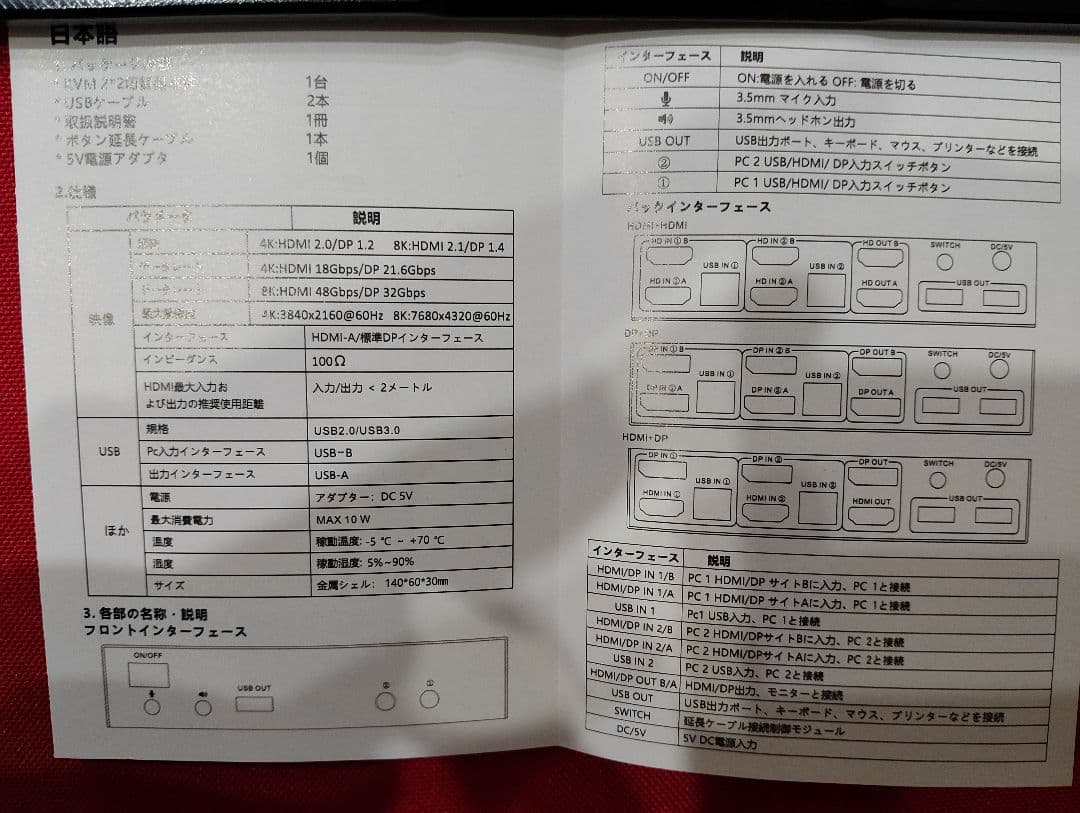 日本語
* KVM 2*2 1台
* USBケーブル 2本
* 取扱説明書 1冊
* ボタン延長ケーブル 1本
* 5V電源アダプタ 1個
2.仕様
説明
映像
4K:HDMI 2.0/DP 1.2 8K:HDMI 2.1/DP 1.4
4K:HDMI 18Gbps/DP 21.6Gbps
8K:HDMI 48Gbps/DP 32Gbps
4K:3840x2160@60Hz 8K:7680x4320@60Hz
インターフェース HDMI-A/標準DPインターフェース
インピーダンス 100Ω
HDMI最大入力お
よび出力の推奨使用距離 入力/出力 < 2メートル
USB
規格 USB2.0/USB3.0
Pc入力インターフェース USB-B
出力インターフェース USB-A
ほか
電源 アダプター: DC 5V
最大消費電力 MAX 10 W
温度 稼動温度: -5 ℃ ~ +70 ℃
湿度 稼動湿度: 5%~90%
サイズ 金属シェル: 140*60*30mm
3. 各部の名称・説明
フロントインターフェース
ON/OFF
USB OUT
② ①
インターフェース 説明
ON/OFF ON:電源を入れる OFF: 電源を切る
3.5mm マイク入力
3.5mmヘッドホン出力
USB OUT USB出力ポート、キーボード、マウス、プリンターなどを接続
② PC 2 USB/HDMI/ DP入力スイッチボタン
① PC 1 USB/HDMI/ DP入力スイッチボタン
バックインターフェース
HDMI+HDMI
HD IN ① B HD IN ② B HD OUT B SWITCH DC/5V
USB IN ① USB IN ②
HD IN ① A HD IN ② A HD OUT A USB OUT
DP+DP
DP IN ① B DP IN ② B DP OUT B SWITCH DC/5V
USB IN ① USB IN ②
DP IN ① A DP IN ② A DP OUT A USB OUT
HDMI+DP
DP IN ① DP IN ② DP OUT SWITCH DC/5V
USB IN ① USB IN ②
HDMI IN ① HDMI IN ② HDMI OUT USB OUT
インターフェース 説明
HDMI/DP IN 1/B PC 1 HDMI/DP サイトBに入力、PC 1と接続
HDMI/DP IN 1/A PC 1 HDMI/DP サイトAに入力、PC 1と接続
USB IN 1 Pc1 USB入力、PC 1と接続
HDMI/DP IN 2/B PC 2 HDMI/DPサイトBに入力、PC 2と接続
HDMI/DP IN 2/A PC 2 HDMI/DPサイトAに入力、PC 2と接続
USB IN 2 PC 2 USB入力、PC 2と接続
HDMI/DP OUT B/A HDMI/DP出力、モニターと接続
USB OUT USB出力ポート、キーボード、マウス、プリンターなどを接続
SWITCH 延長ケーブル接続制御モジュール
DC/5V 5V DC電源入力